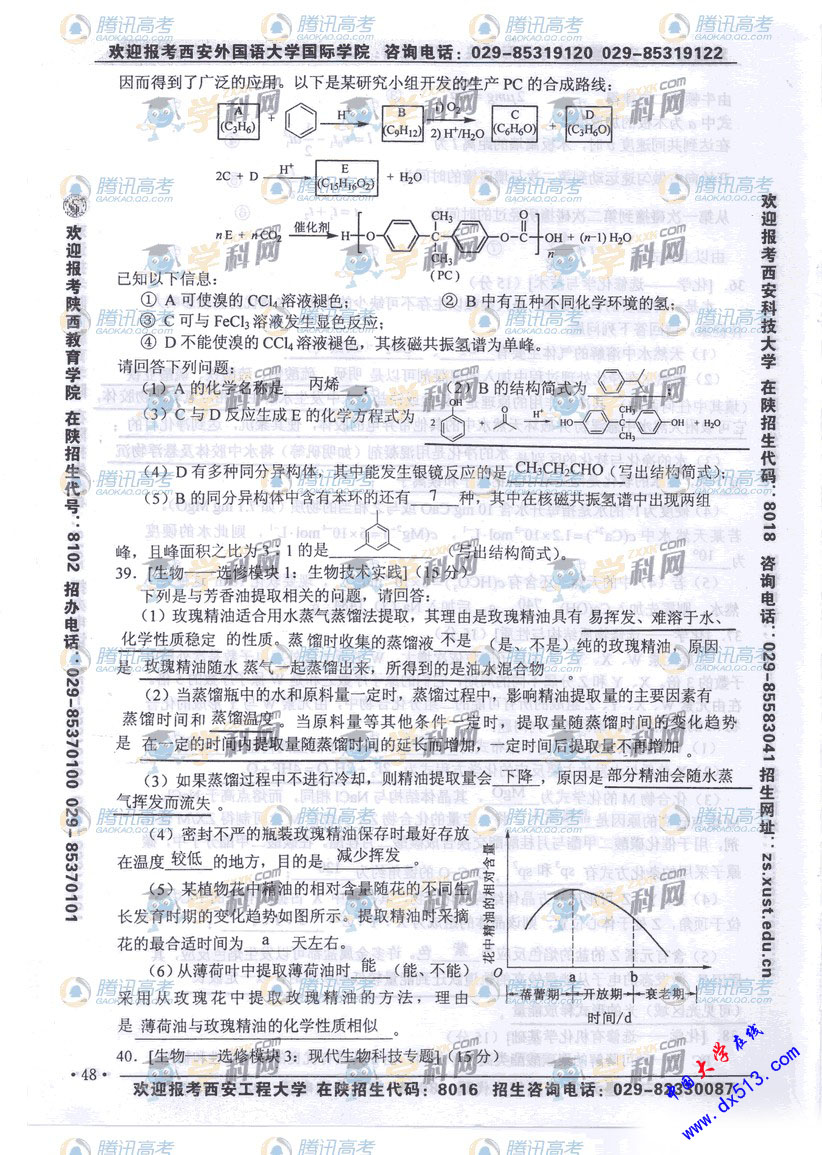 欢迎报考西安外国语大学国际学院 咨询电话：029-85319120 029-85319122
因而得到了广泛的应用。以下是某研究小组开发的生产 PC 的合成路线：
A (C3H6) + H+ B (C9H12) 1) O2 2) H+/H2O C (C6H6O) + D (C3H6O)
2C + D H+ E (C15H16O2) + H2O
n E + n CO2 催化剂 H O CH3 C CH3 O C O OH n + (n-1) H2O
(PC)
已知以下信息：
① A 可使溴的 CCl4 溶液褪色； ② B 中有五种不同化学环境的氢；
③ C 可与 FeCl3 溶液发生显色反应；
④ D 不能使溴的 CCl4 溶液褪色，其核磁共振氢谱为单峰。
请回答下列问题：
（1）A 的化学名称是 丙烯 ； （2）B 的结构简式为 ；
（3）C 与 D 反应生成 E 的化学方程式为 2 OH + O H+ HO CH3 C CH3 OH + H2O
（4）D 有多种同分异构体，其中能发生银镜反应的是 CH3CH2CHO（写出结构简式）；
（5）B 的同分异构体中含有苯环的还有 7 种，其中在核磁共振氢谱中出现两组
峰，且峰面积之比为 3﹕1 的是 （写出结构简式）。
39．[生物——选修模块 1：生物技术实践]（15 分）
下列是与芳香油提取相关的问题，请回答：
（1）玫瑰精油适合用水蒸气蒸馏法提取，其理由是玫瑰精油具有 易挥发、难溶于水、
化学性质稳定 的性质。蒸馏时收集的蒸馏液 不是 （是、不是）纯的玫瑰精油，原因
是 玫瑰精油随水 蒸气一起蒸馏出来，所得到的是油水混合物 。
（2）当蒸馏瓶中的水和原料量一定时，蒸馏过程中，影响精油提取量的主要因素有
蒸馏时间和 蒸馏温度 。当原料量等其他条件一定时，提取量随蒸馏时间的变化趋势
是 在一定的时间内提取量随蒸馏时间的延长而增加，一定时间后提取量不再增加 。
（3）如果蒸馏过程中不进行冷却，则精油提取量会 下降 ，原因是 部分精油会随水蒸
气挥发而流失 。
（4）密封不严的瓶装玫瑰精油保存时最好存放
在温度 较低 的地方，目的是 减少挥发 。
（5）某植物花中精油的相对含量随花的不同生
长发育时期的变化趋势如图所示。提取精油时采摘
花的最合适时间为 a 天左右。
（6）从薄荷叶中提取薄荷油时 能 （能、不能）
采用从玫瑰花中提取玫瑰精油的方法，理由
是 薄荷油与玫瑰精油的化学性质相似 。
花中精油的相对含量
O a b
蓓蕾期 开放期 衰老期
时间/d
40．[生物——选修模块 3：现代生物科技专题]（15 分）
· 48 ·
欢迎报考西安工程大学 在陕招生代码：8016 招生咨询电话：029-82330087
欢迎报考陕西教育学院 在陕招生代号：8102 招办电话：029-85370100 029-85370101
欢迎报考西安科技大学 在陕招生代码：8018 咨询电话：029-85583041 招生网址：zs.xust.edu.cn
腾讯高考
GAOKAO.QQ.COM
学科网
ZXXK.COM
中国大学在线
www.dx513.com